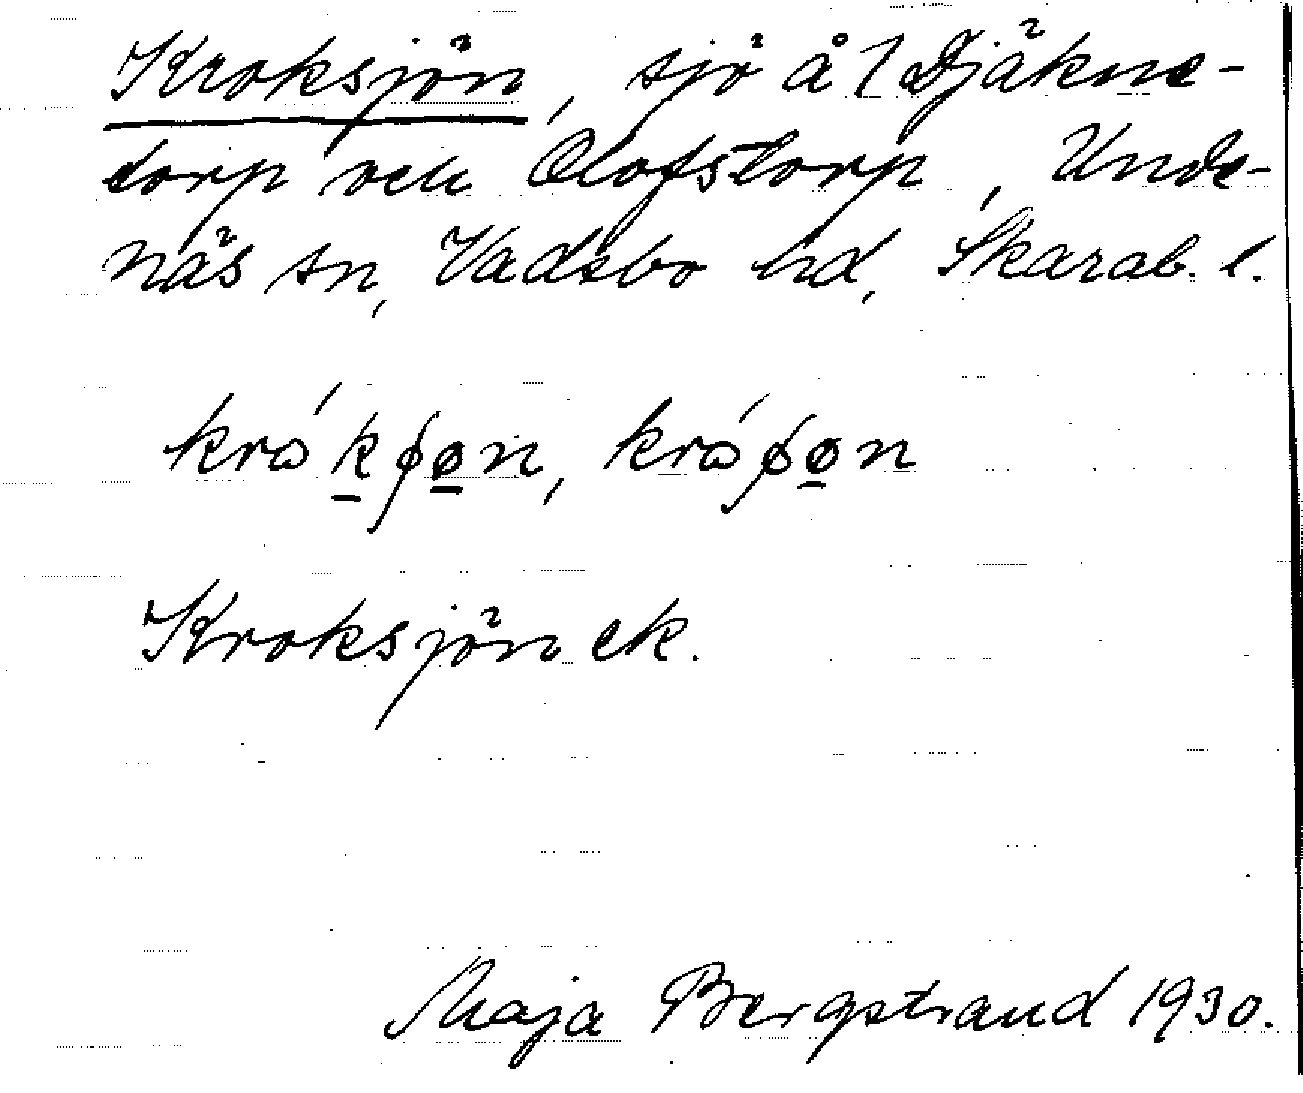 Kroksjön, sjö å 1 Djäkne-
torp och Olofstorp, Unde-
näs sn, Vadsbo hd, Skarab. l.
Kroksjön ek.
Maja Bergstrand 1930.